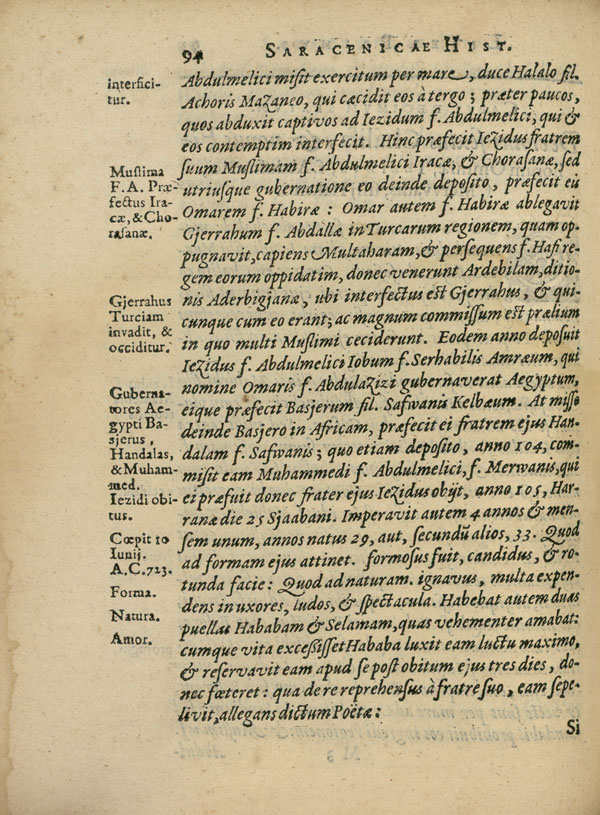 94 SARACENICAE HIST.
interfici-
tur.
Abdulmelici misit exercitum per mare, duce Halalo fil.
Achoris Mazaneo, qui cæcidit eos à tergo; præter paucos,
quos abduxit captivos ad Iezidum f. Abdulmelici, qui &
eos contemptim interfecit. Hinc præfecit Iezidus fratrem
suum Muslimam f. Abdulmelici Iracæ, & Chorasanæ, sed
Muslima
F. A. Præ-
fectus Ira-
cæ, & Cho-
rasanæ.
utriusque gubernatione eo deinde deposito, præfecit eis
Omarem f. Habiræ: Omar autem f. Habiræ ablegavit
Gjerrahum f. Abdallæ in Turcarum regionem, quam op-
pugnavit, capiens Multaharam, & persequens f. Hafi re-
gem eorum oppidatim, donec venerunt Ardebilam, ditio-
Gjerrahus
Turciam
invadit, &
occiditur.
nis Aderbigjanæ, ubi interfectus est Gjerrahus, & qui-
cunque cum eo erant; ac magnum commissum est prælium
in quo multi Muslimi ceciderunt. Eodem anno deposuit
Iezidus f. Abdulmelici Iobum f. Serhabilis Amræum, qui
nomine Omaris f. Abdulazizi gubernaverat Aegyptum,
Guberna-
tores Ae-
gypti Ba-
sjerus,
Handalas,
& Muham-
med.
eique præfecit Basjerum fil. Safwanis Kelbæum. At misso
deinde Basjero in Africam, præfecit ei fratrem ejus Han-
dalam f. Safwanis; quo etiam deposito, anno 104, com-
misit eam Muhammedi f. Abdulmelici, f. Merwanis, qui
Iezidi obi-
tus.
ei præfuit donec frater ejus Iezidus obijt, anno 105, Har-
ranæ die 25 Sjaabani. Imperavit autem 4 annos & men-
Cœpit 10
Iunij.
A.C. 723.
sem unum, annos natus 29, aut, secundũ alios, 33. Quod
ad formam ejus attinet. formosus fuit, candidus, & ro-
Forma.
tunda facie: Quod ad naturam. ignavus, multa expen-
Natura.
dens in uxores, ludos, & spectacula. Habebat autem duas
Amor.
puellas Hababam & Selamam, quas vehementer amabat:
cumque vita excessisset Hababa luxit eam luctu maximo,
& reservavit eam apud se post obitum ejus tres dies, do-
nec fœteret: qua de re reprehensus à fratre suo, eam sepe-
livit, allegans dictum Poëtæ:
Si